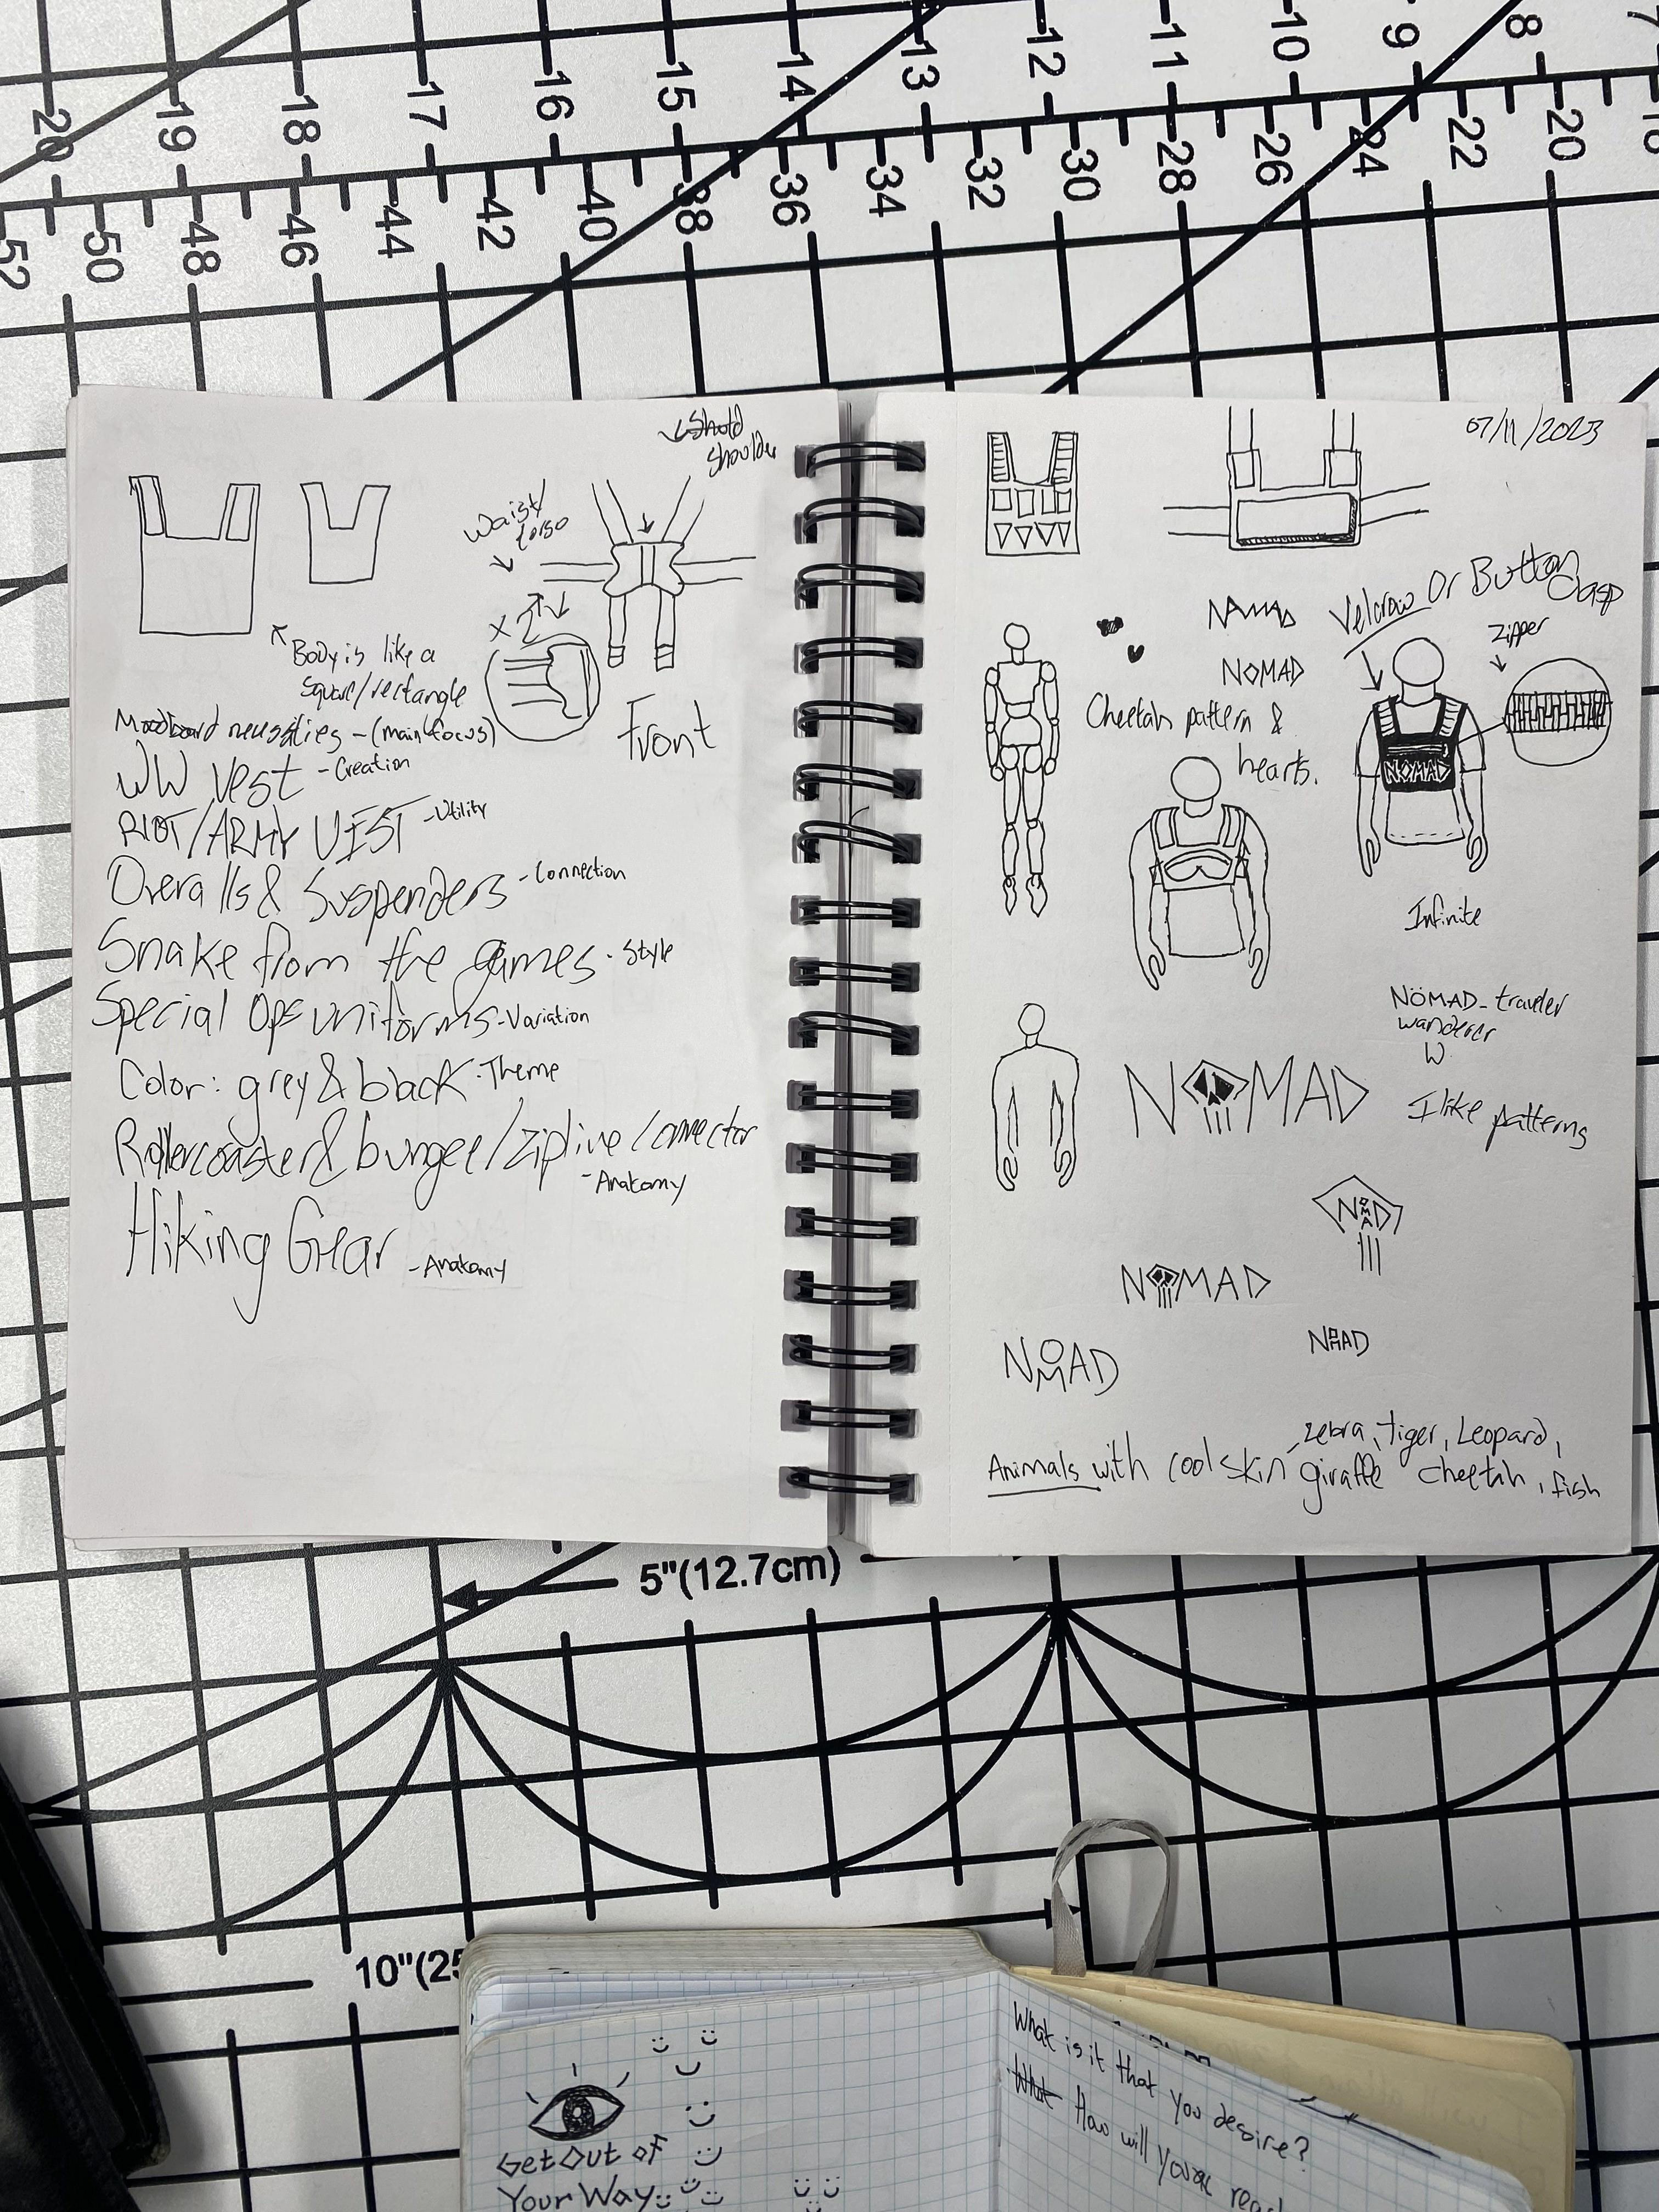 20 19 18 17 16 15 14 13 12 11 10 9 8 7
52 50 48 46 44 42 40 38 36 34 32 30 28 26 24 22 20 18
Shold
Shoulder
Waist/
torso
x2
Body is like a
Square/rectangle
Front
Moodboard neussities - (main focus)
WW Vest - Creation
RIOT/ARMY VEST - Utility
Overalls & Suspenders - Connection
Snake from the games - Style
Special Ops uniforms - Variation
Color: grey & black - Theme
Rollercoaster & bungee/zipline connector
- Anatomy
Hiking Gear - Anatomy
07/11/2023
Velcrow Or Button
Clasp
Zipper
NAMAD
NOMAD
Cheetah pattern &
hearts.
NOMAD
Infinite
NÖMAD - traveler
wanderer
W
NOMAD
I like patterns
NOMAD
NOMAD
NOMAD
NOMAD
Animals with cool skin - zebra, tiger, Leopard,
giraffe cheetah, fish
5"(12.7cm)
10"(25
Get Out of
Your Way
What is it that you desire?
What How will you